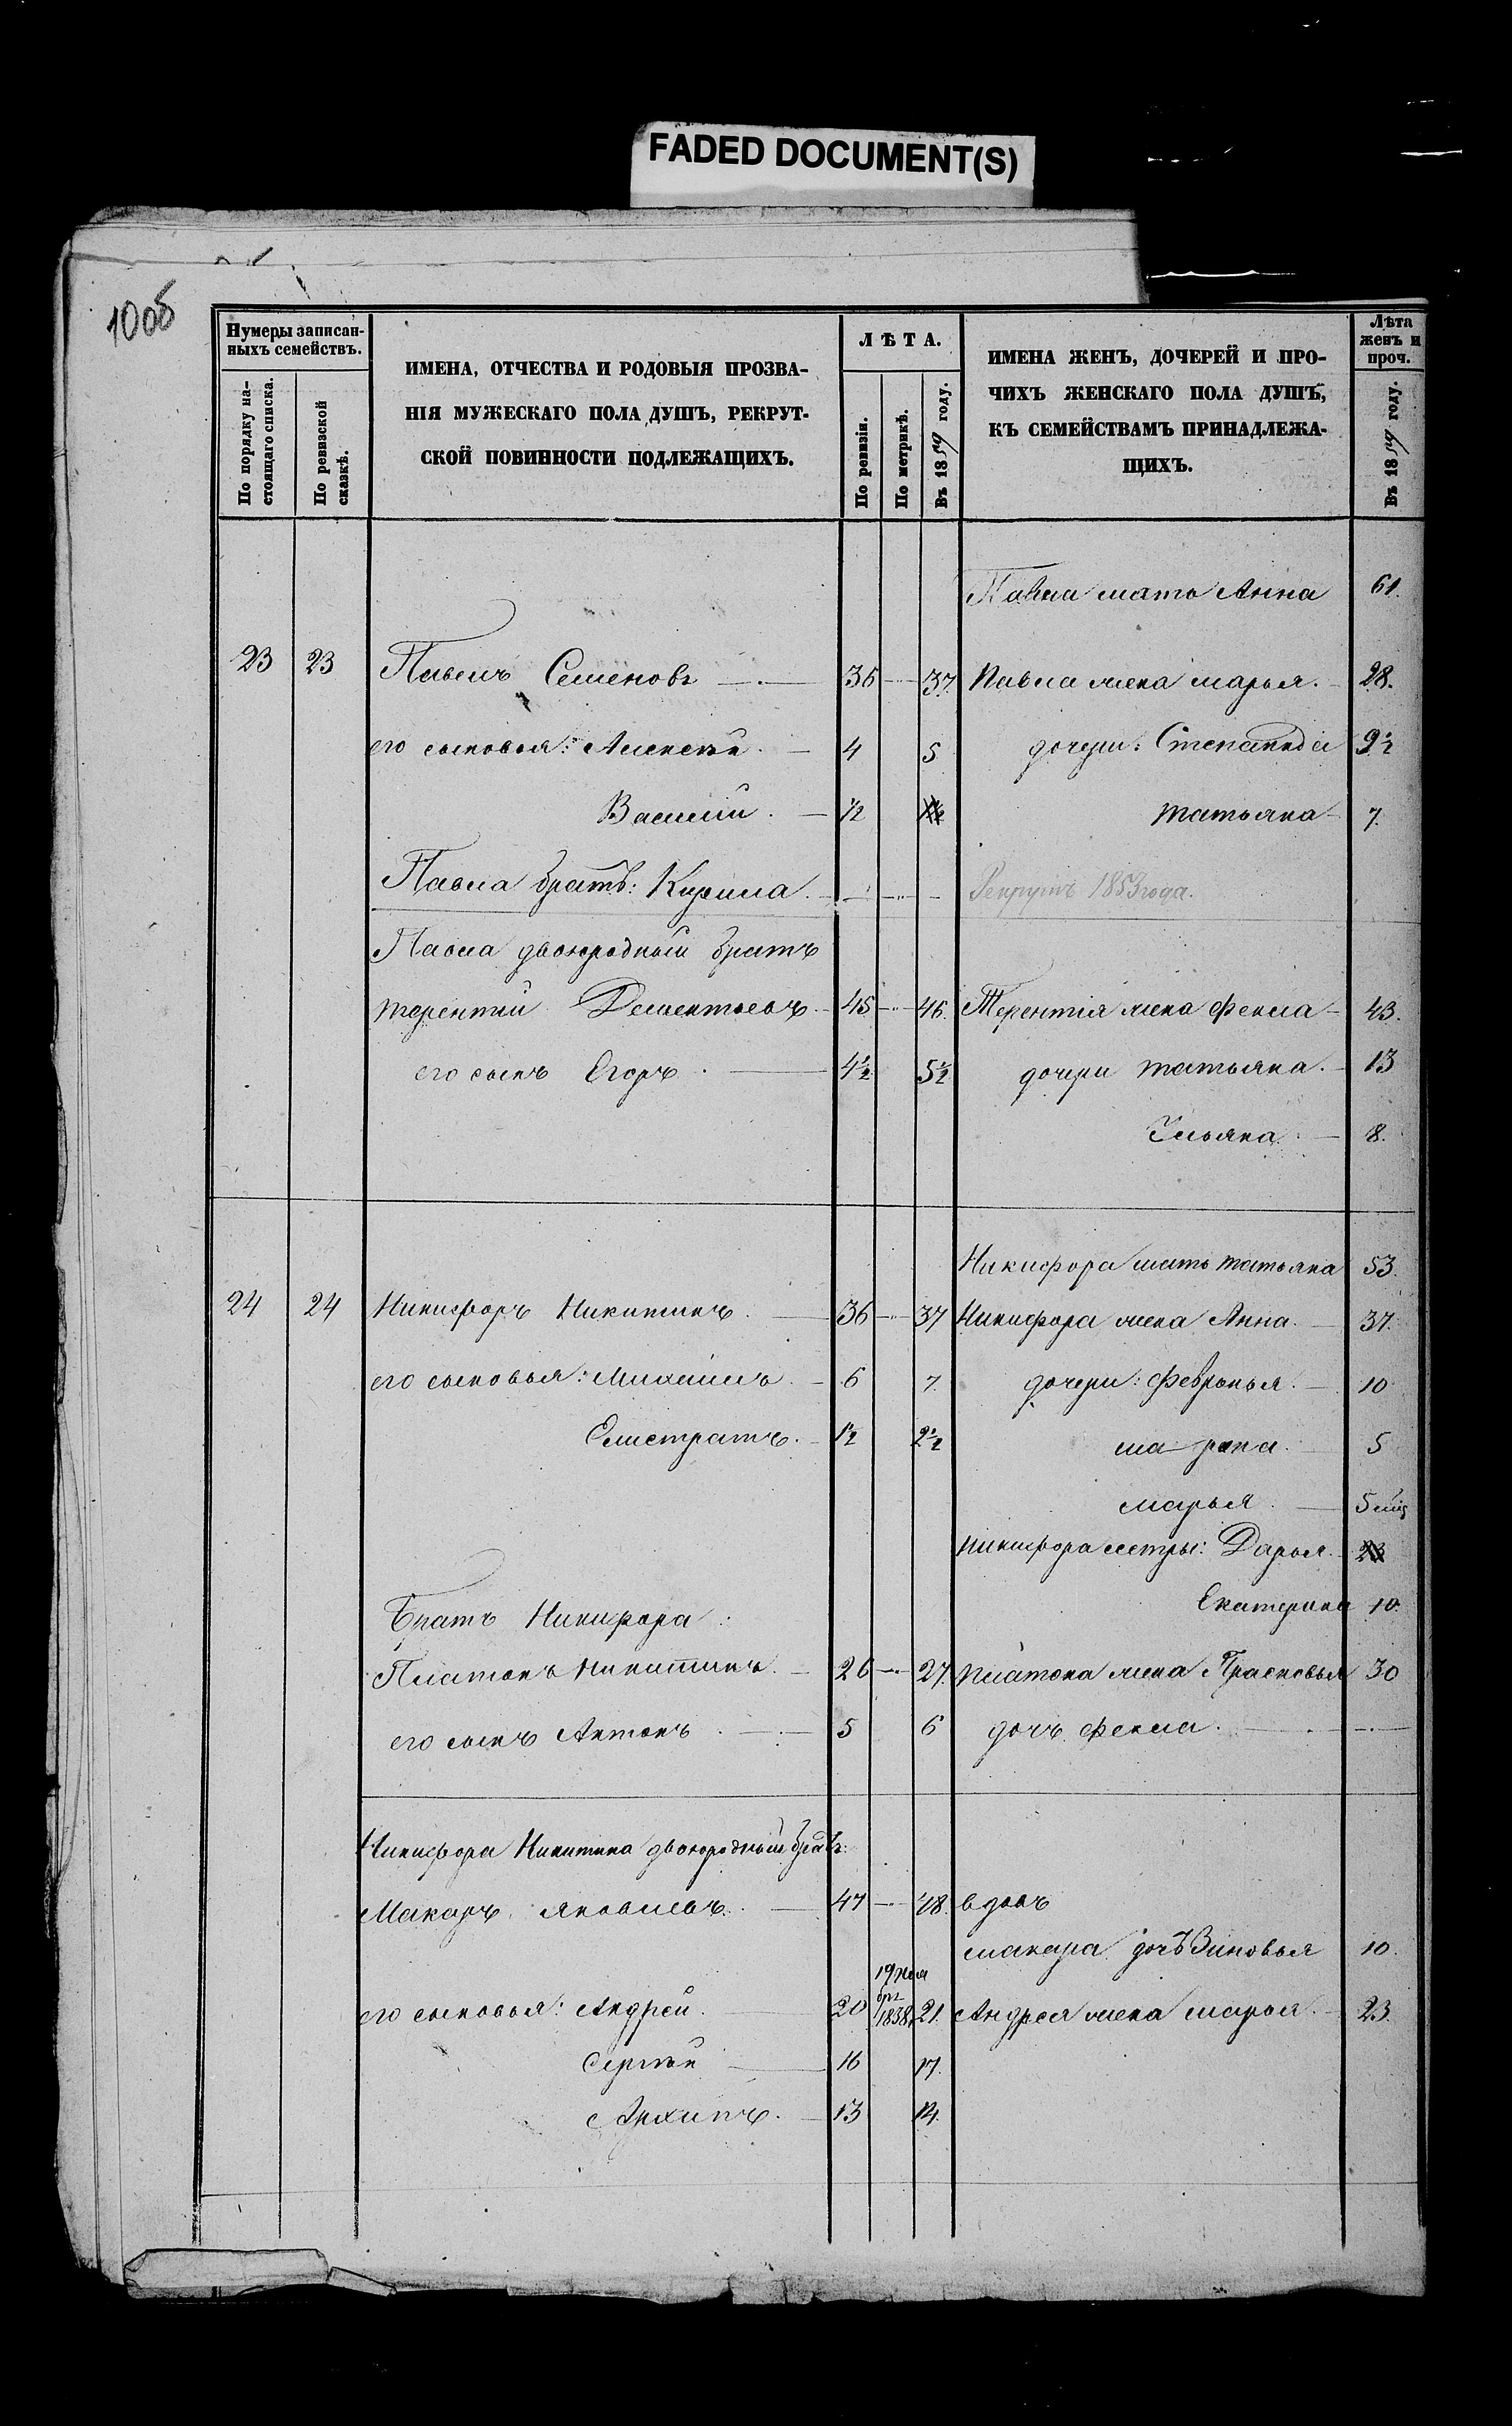 FADED DOCUMENT(S)
100б
Нумеры записан-
ныхъ семействъ.
По порядку на-
стоящаго списка.
По ревизской
сказкѣ.
ИМЕНА, ОТЧЕСТВА И РОДОВЫЯ ПРОЗВА-
НІЯ МУЖЕСКАГО ПОЛА ДУШЪ, РЕКРУТ-
СКОЙ ПОВИННОСТИ ПОДЛЕЖАЩИХЪ.
ЛѢТА.
По ревизіи.
По метрикѣ.
Въ 1859 году.
ИМЕНА ЖЕНЪ, ДОЧЕРЕЙ И ПРО-
ЧИХЪ ЖЕНСКАГО ПОЛА ДУШЪ,
КЪ СЕМЕЙСТВАМЪ ПРИНАДЛЕЖА-
ЩИХЪ.
Лѣта
женъ и
проч.
Въ 1859 году.
Павла мать Анна 61.
23 23 Павелъ Семеновъ — 36 — 37. Павла жена Марья. 28.
его сыновья: Алексѣй. — 4 5 дочери: Степанида 9½
Василій. — ½ Татьяна 7.
Павла братъ: Кирила. — — — Рекрутъ 1853 года.
Павла двоюродный братъ
Терентій Дементьевъ — 45 — 46. Терентія жена Фекла — 43.
его сынъ Егоръ. — 4½ 5½ дочери Татьяна. — 13
Ульяна. — 8.
Никифора мать Татьяна 53.
24 24 Никифоръ Никитинъ. — 36 — 37 Никифора жена Анна. — 37.
его сыновья: Михаилъ. — 6 7. дочери: Февронья. — 10
Елистратъ. — 1½ 2½ Матрена. 5
Марья. — 5 мѣс
Никифора сестры: Дарья. 23
Екатерина 10.
Братъ Никифора:
Платонъ Никитинъ. — 26 — 27. Платона жена Прасковья 30
его сынъ Антонъ. — 5 6 дочь Фекла. — —
Никифора Никитина двоюродный братъ:
Макаръ Яковлевъ. — 47 — 48. вдовъ
Макара дочь Зиновья 10.
19 Ноя
бря
его сыновья: Андрей. — 20 1838 21. Андрея жена Марья. — 23.
Сергѣй — 16 17.
Архипъ. — 13 14.